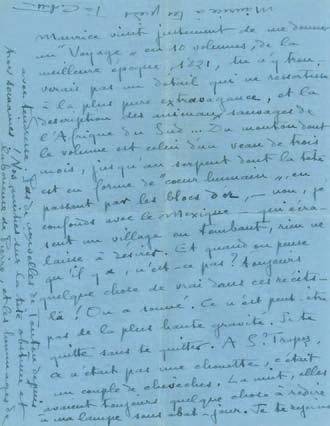 Maurice vient justement de me donner
un "Voyage" en 10 volumes, de la
meilleure époque, 1821, tu n'y trou-
verais pas un détail qui ne ressortisse
à la plus pure extravagance, et la
description des animaux sauvages de
l'Afrique du Sud... Du mouton dont
le volume est celui d'un veau de trois
mois, jusqu'au serpent dont la tête
est en forme de "coeur humain", en
passant par les blocs d'or, — non, je
confonds avec le Mexique — qui écra-
sent un village en tombant, rien ne
laisse à désirer. Et quand on pense
qu'il y a, n'est-ce pas? toujours
quelque chose de vrai dans ces récits-
là! On a sonné. Ce n'est peut-être
pas de la plus haute gravité. Je te
quitte sans te quitter. A St. Tropez,
ce n'était pas une chouette, c'était
un couple de chevêches. La nuit, elles
avaient toujours quelque chose à redire
à ma lampe sans abat-jour. Je te
avec tendresse.
nouvelles de l'autre depuis
trois semaines